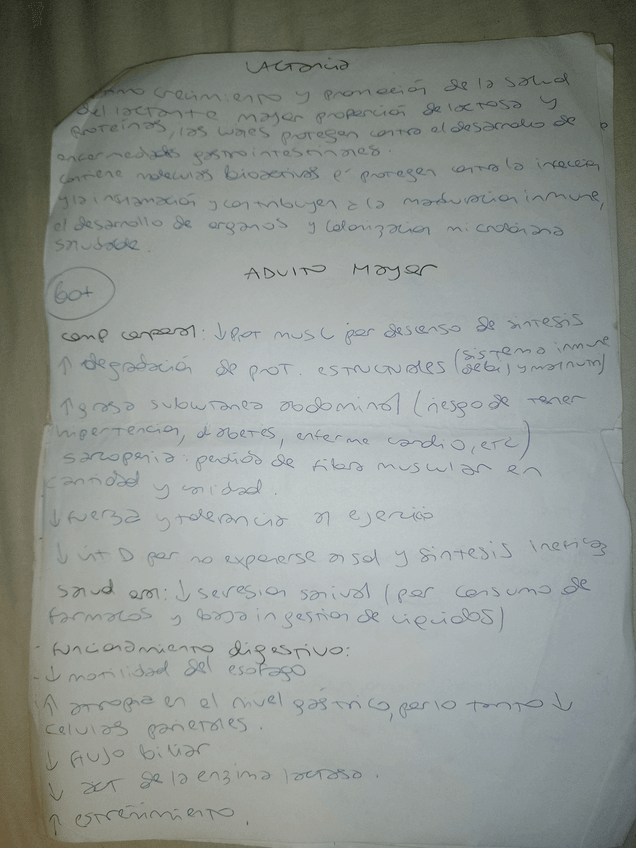 Lactancia
crecimiento y promoción de la salud
del lactante mayor proporción de lactosa y
proteinas, las cuales protegen contra el desarrollo de
enfermedades gastrointestinales.
contiene moleculas bioactivas protegen contra la infección
y la inflamación y contribuyen a la maduración inmune,
el desarrollo de organos y colonización microbiana
saludable.
ADULTO Mayor
60+
comp corporal: ↓ prot musc por descenso de sintesis
↑ degradación de prot. estructurales (sistema inmune
debil y malnutri)
↑ grasa subcutanea abdominal (riesgo de tener
hipertención, diabetes, enferme cardio, etc)
sarcopenia: perdida de fibra muscular en
cantidad y calidad.
↓ fuerza y tolerancia al ejercicio
↓ vit D por no exponerse al sol y sintesis ineficaz
salud oral: ↓ seresion salival (por consumo de
farmacos y baja ingestion de liquidos)
- funcionamiento digestivo:
- ↓ motilidad del esofago
↑ atrofia en el nivel gástrico, por lo tanto ↓
celulas parietales.
↓ flujo biliar
↓ act de la enzima lactasa.
↑ estreñimiento.